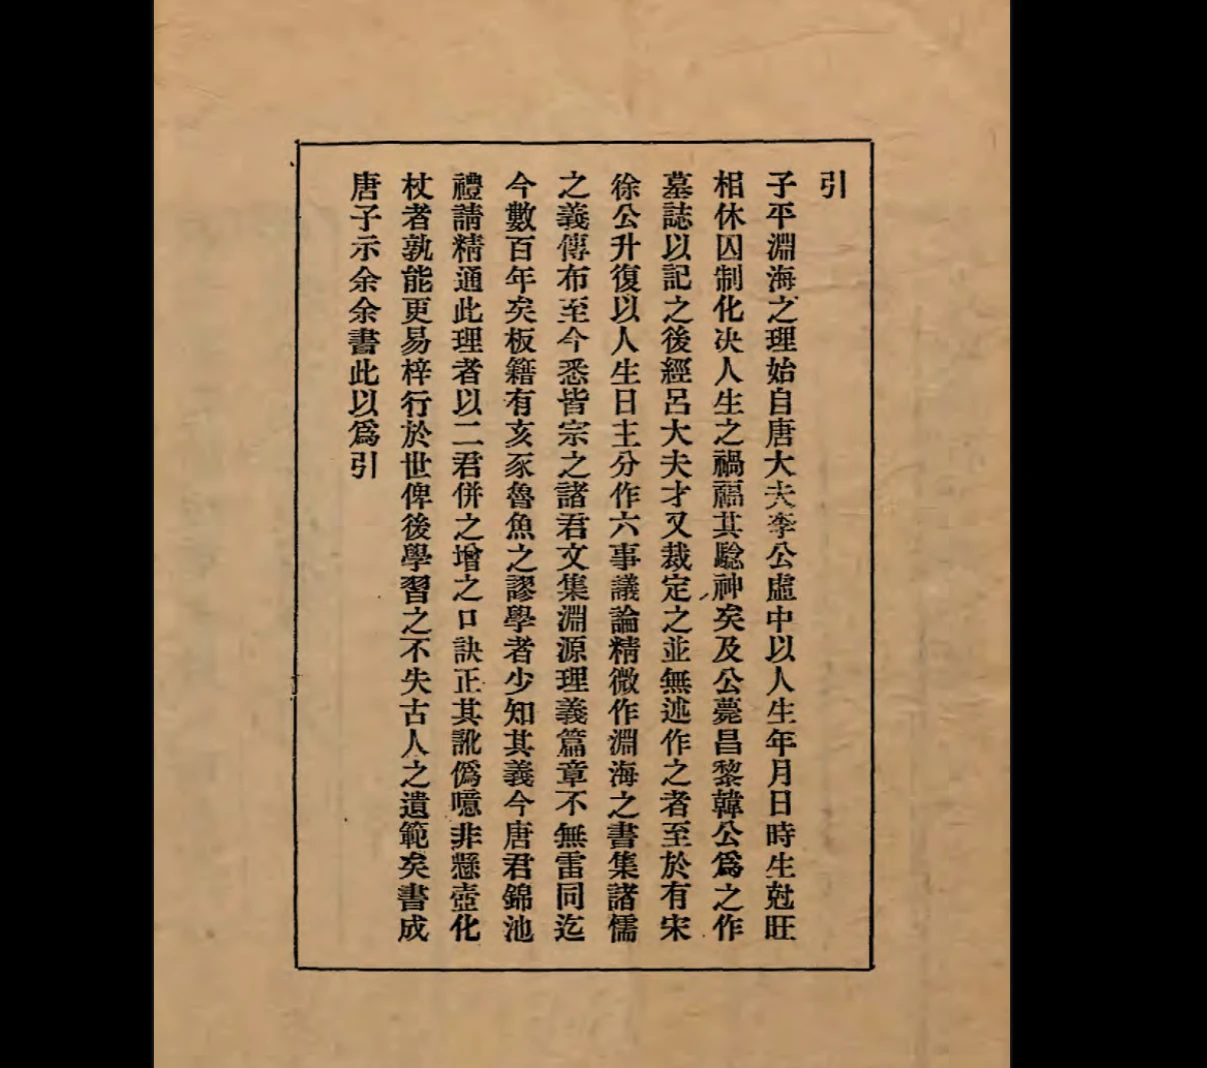 引
子平淵海之理始自唐大夫李公虛中以人生年月日時生尅旺
相休囚制化决人生之禍福其驗神矣及公薨昌黎韓公爲之作
墓誌以記之後經呂大夫才又裁定之並無述作之者至於有宋
徐公升復以人生日主分作六事議論精微作淵海之書集諸儒
之義傳布至今悉皆宗之諸君文集淵源理義篇章不無雷同迄
今數百年矣板籍有亥豕魯魚之謬學者少知其義今唐君錦池
禮請精通此理者以二君併之增之口訣正其訛僞噫非懸壺化
杖者孰能更易梓行於世俾後學習之不失古人之遺範矣書成
唐子示余余書此以爲引